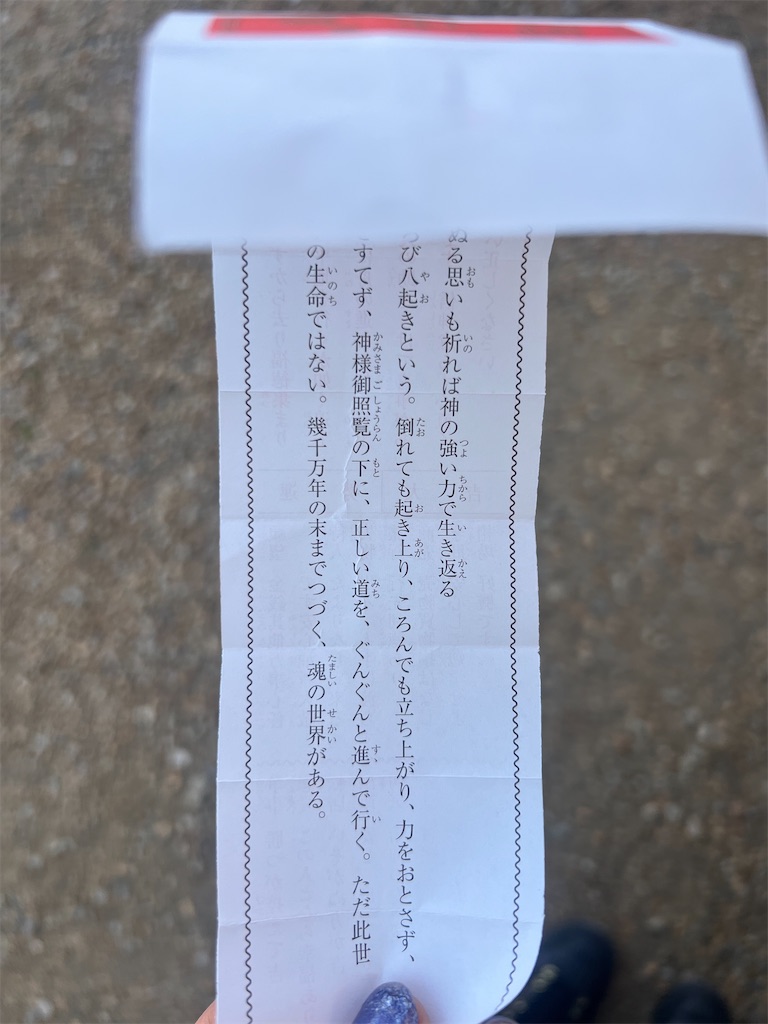 ぬる思いも祈れば神の強い力で生き返る
び八起きという。倒れても起き上り、ころんでも立ち上がり、力をおとさず、
すてず、神様御照覧の下に、正しい道を、ぐんぐんと進んで行く。ただ此世
の生命ではない。幾千万年の末までつづく、魂の世界がある。